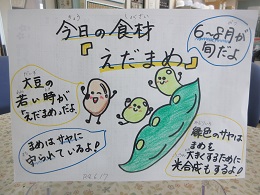 今日の食材
『えだまめ』
6～8月が
旬だよ
大豆の
若い時が
「えだまめ」だよ
まめはサヤに
守られているよ♪
緑色のサヤは
まめを
大きくするために
光合成もするよ♪